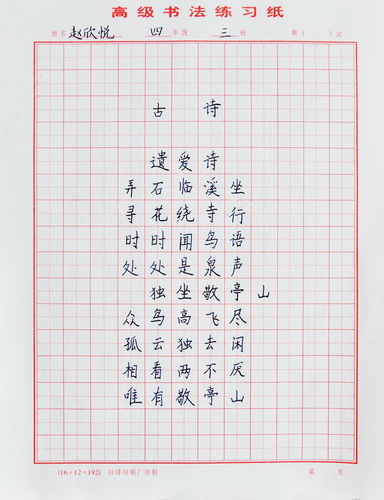 高级书法练习纸
姓名 赵欣悦 四 年级 三 班 第( )次
古 诗
遗爱诗
弄石临溪坐
寻花绕寺行
时时闻鸟语
处处是泉声
独坐敬亭山
众鸟高飞尽
孤云独去闲
相看两不厌
唯有敬亭山
(16×12=192) 印刷厂印制 第 页